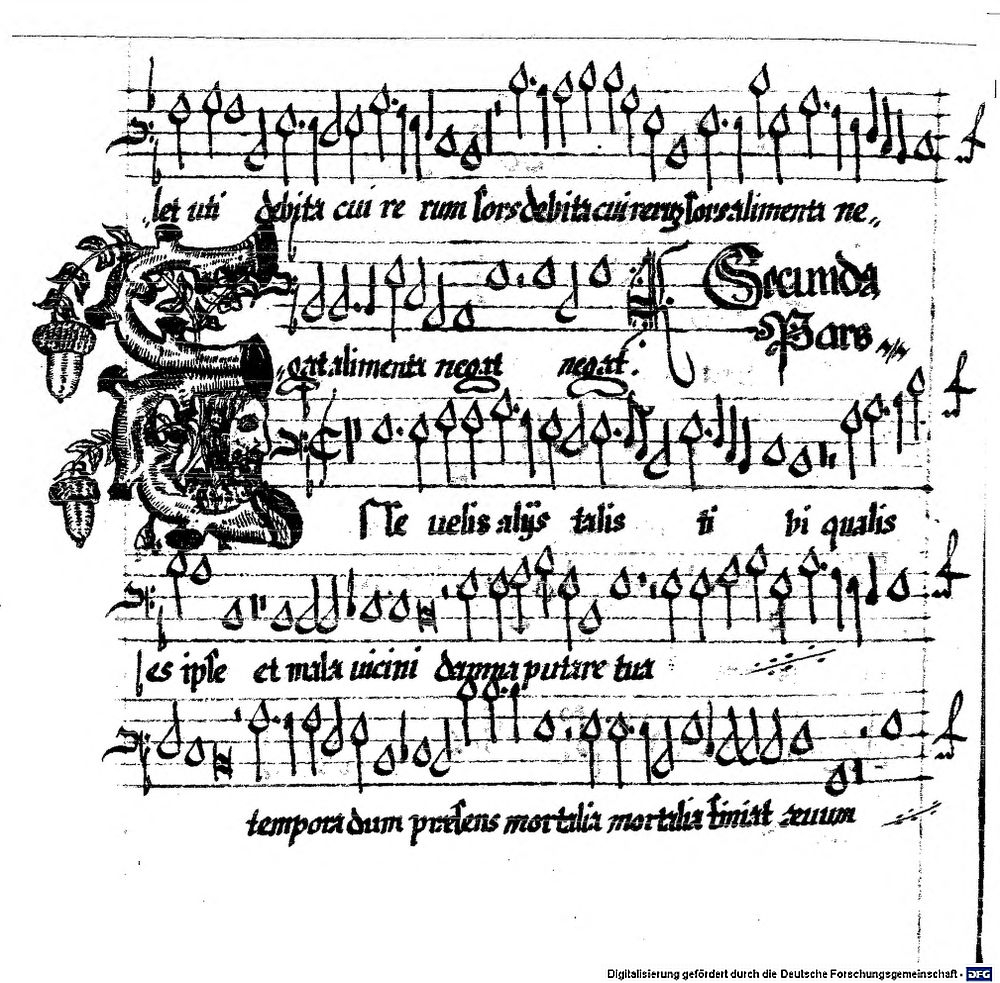 let uti debita cui re rum sors debita cui rerum sors alimenta ne
Secunda
Pars
gat alimenta negat negat.
Te uelis alijs talis ti bi qualis
es ipse et mala uicini damna putare tua
tempora dum præsens mortalia mortalia finiat æuum
Digitalisierung gefördert durch die Deutsche Forschungsgemeinschaft - DFG